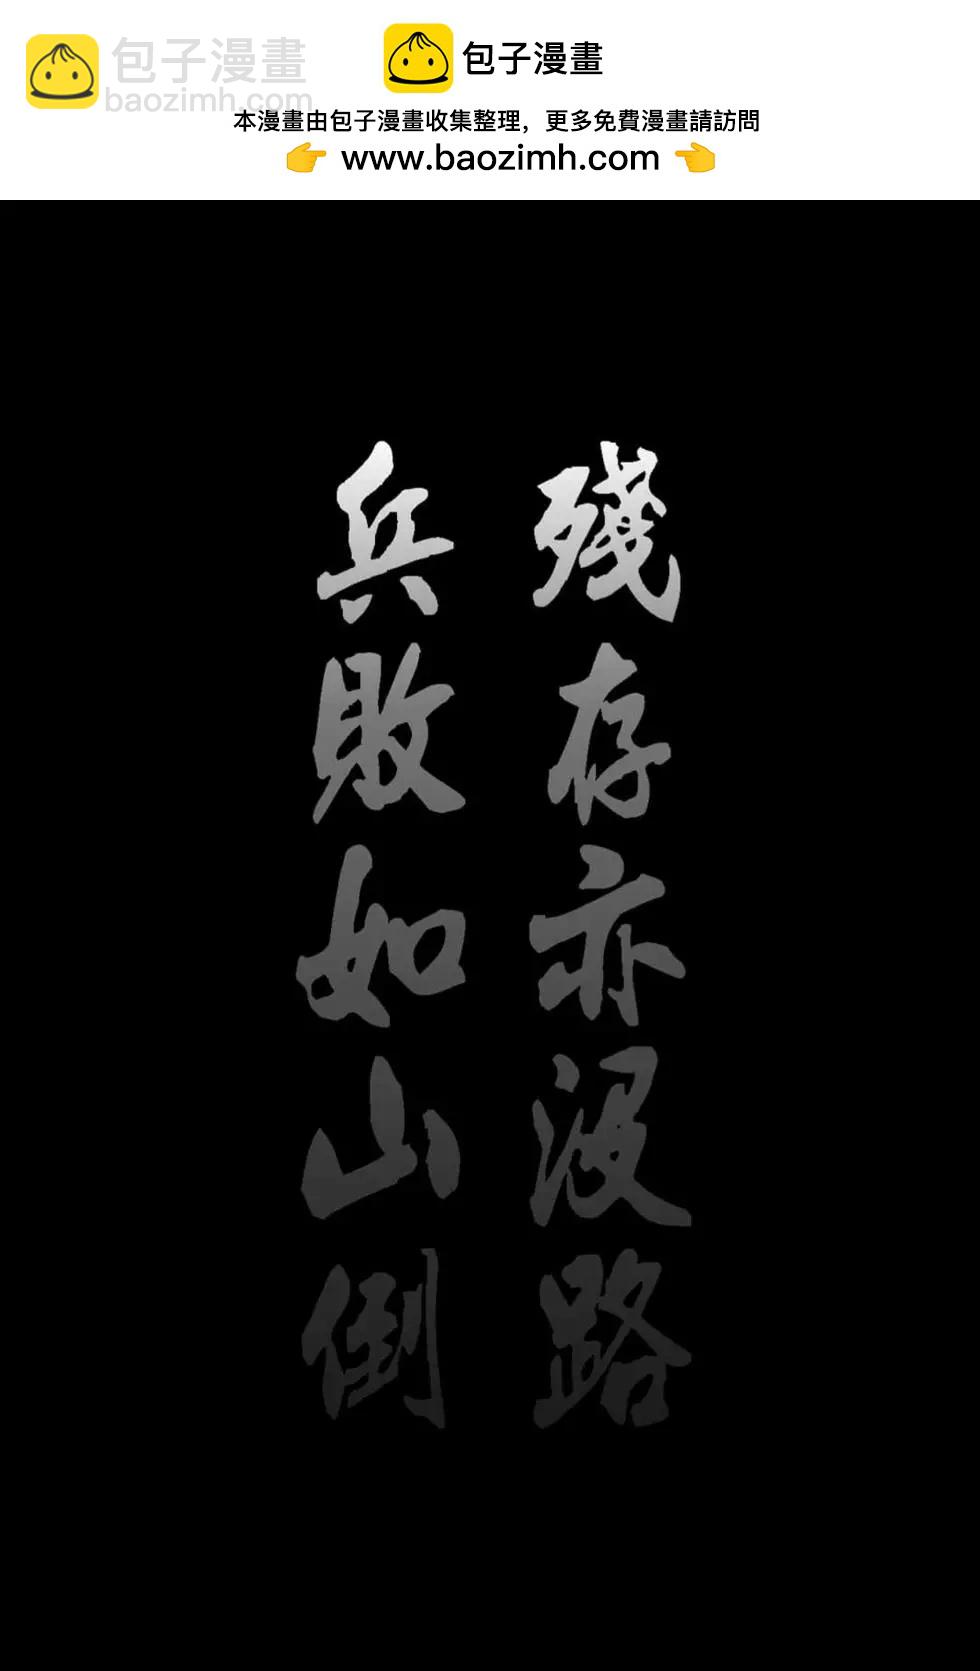 包子漫畫
baozimh.com
包子漫畫
本漫畫由包子漫畫收集整理，更多免費漫畫請訪問
www.baozimh.com
殘存亦沒路
兵敗如山倒